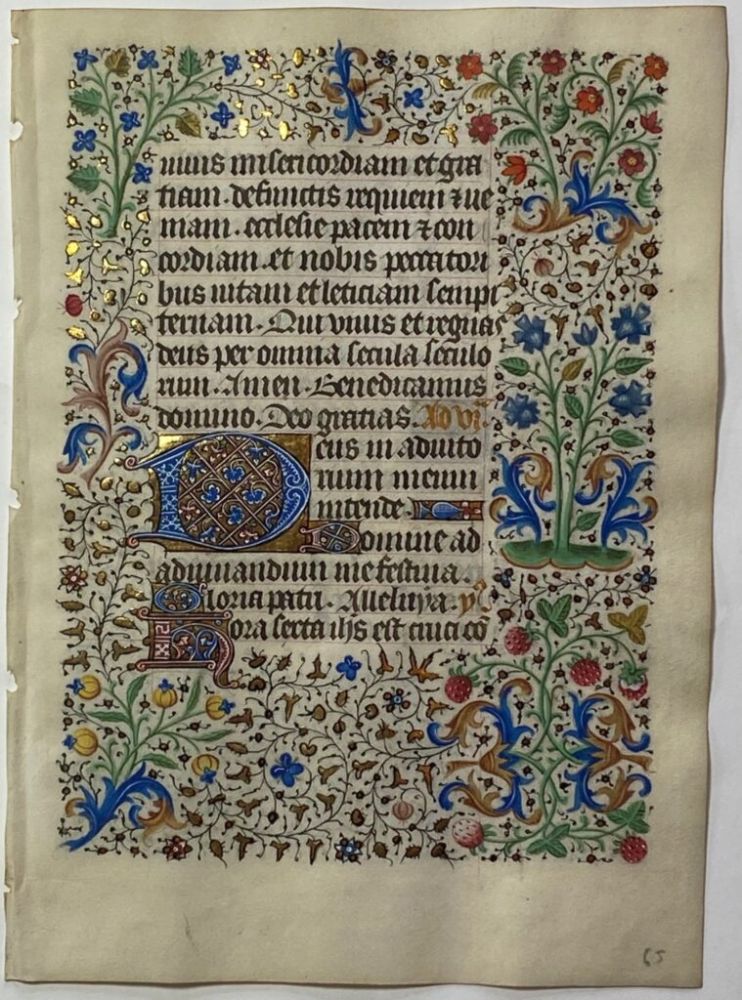 uiuis misericordiam et gra
tiam. defunctis requiem ⁊ ue
niam. ecclesie pacem ⁊ con
cordiam. et nobis peccatori
bus uitam et leticiam sempi
ternam. Qui viuis et regnas
deus per omnia secula seculo
rum. Amen. Benedicamus
domino. Deo gratias. Ad vi.
Deus in adiuto
rium meum
intende.
Domine ad
adiuuandum me festina.
Gloria patri. Alleluya. y̅
Hora sexta ihs est cruci cō
65